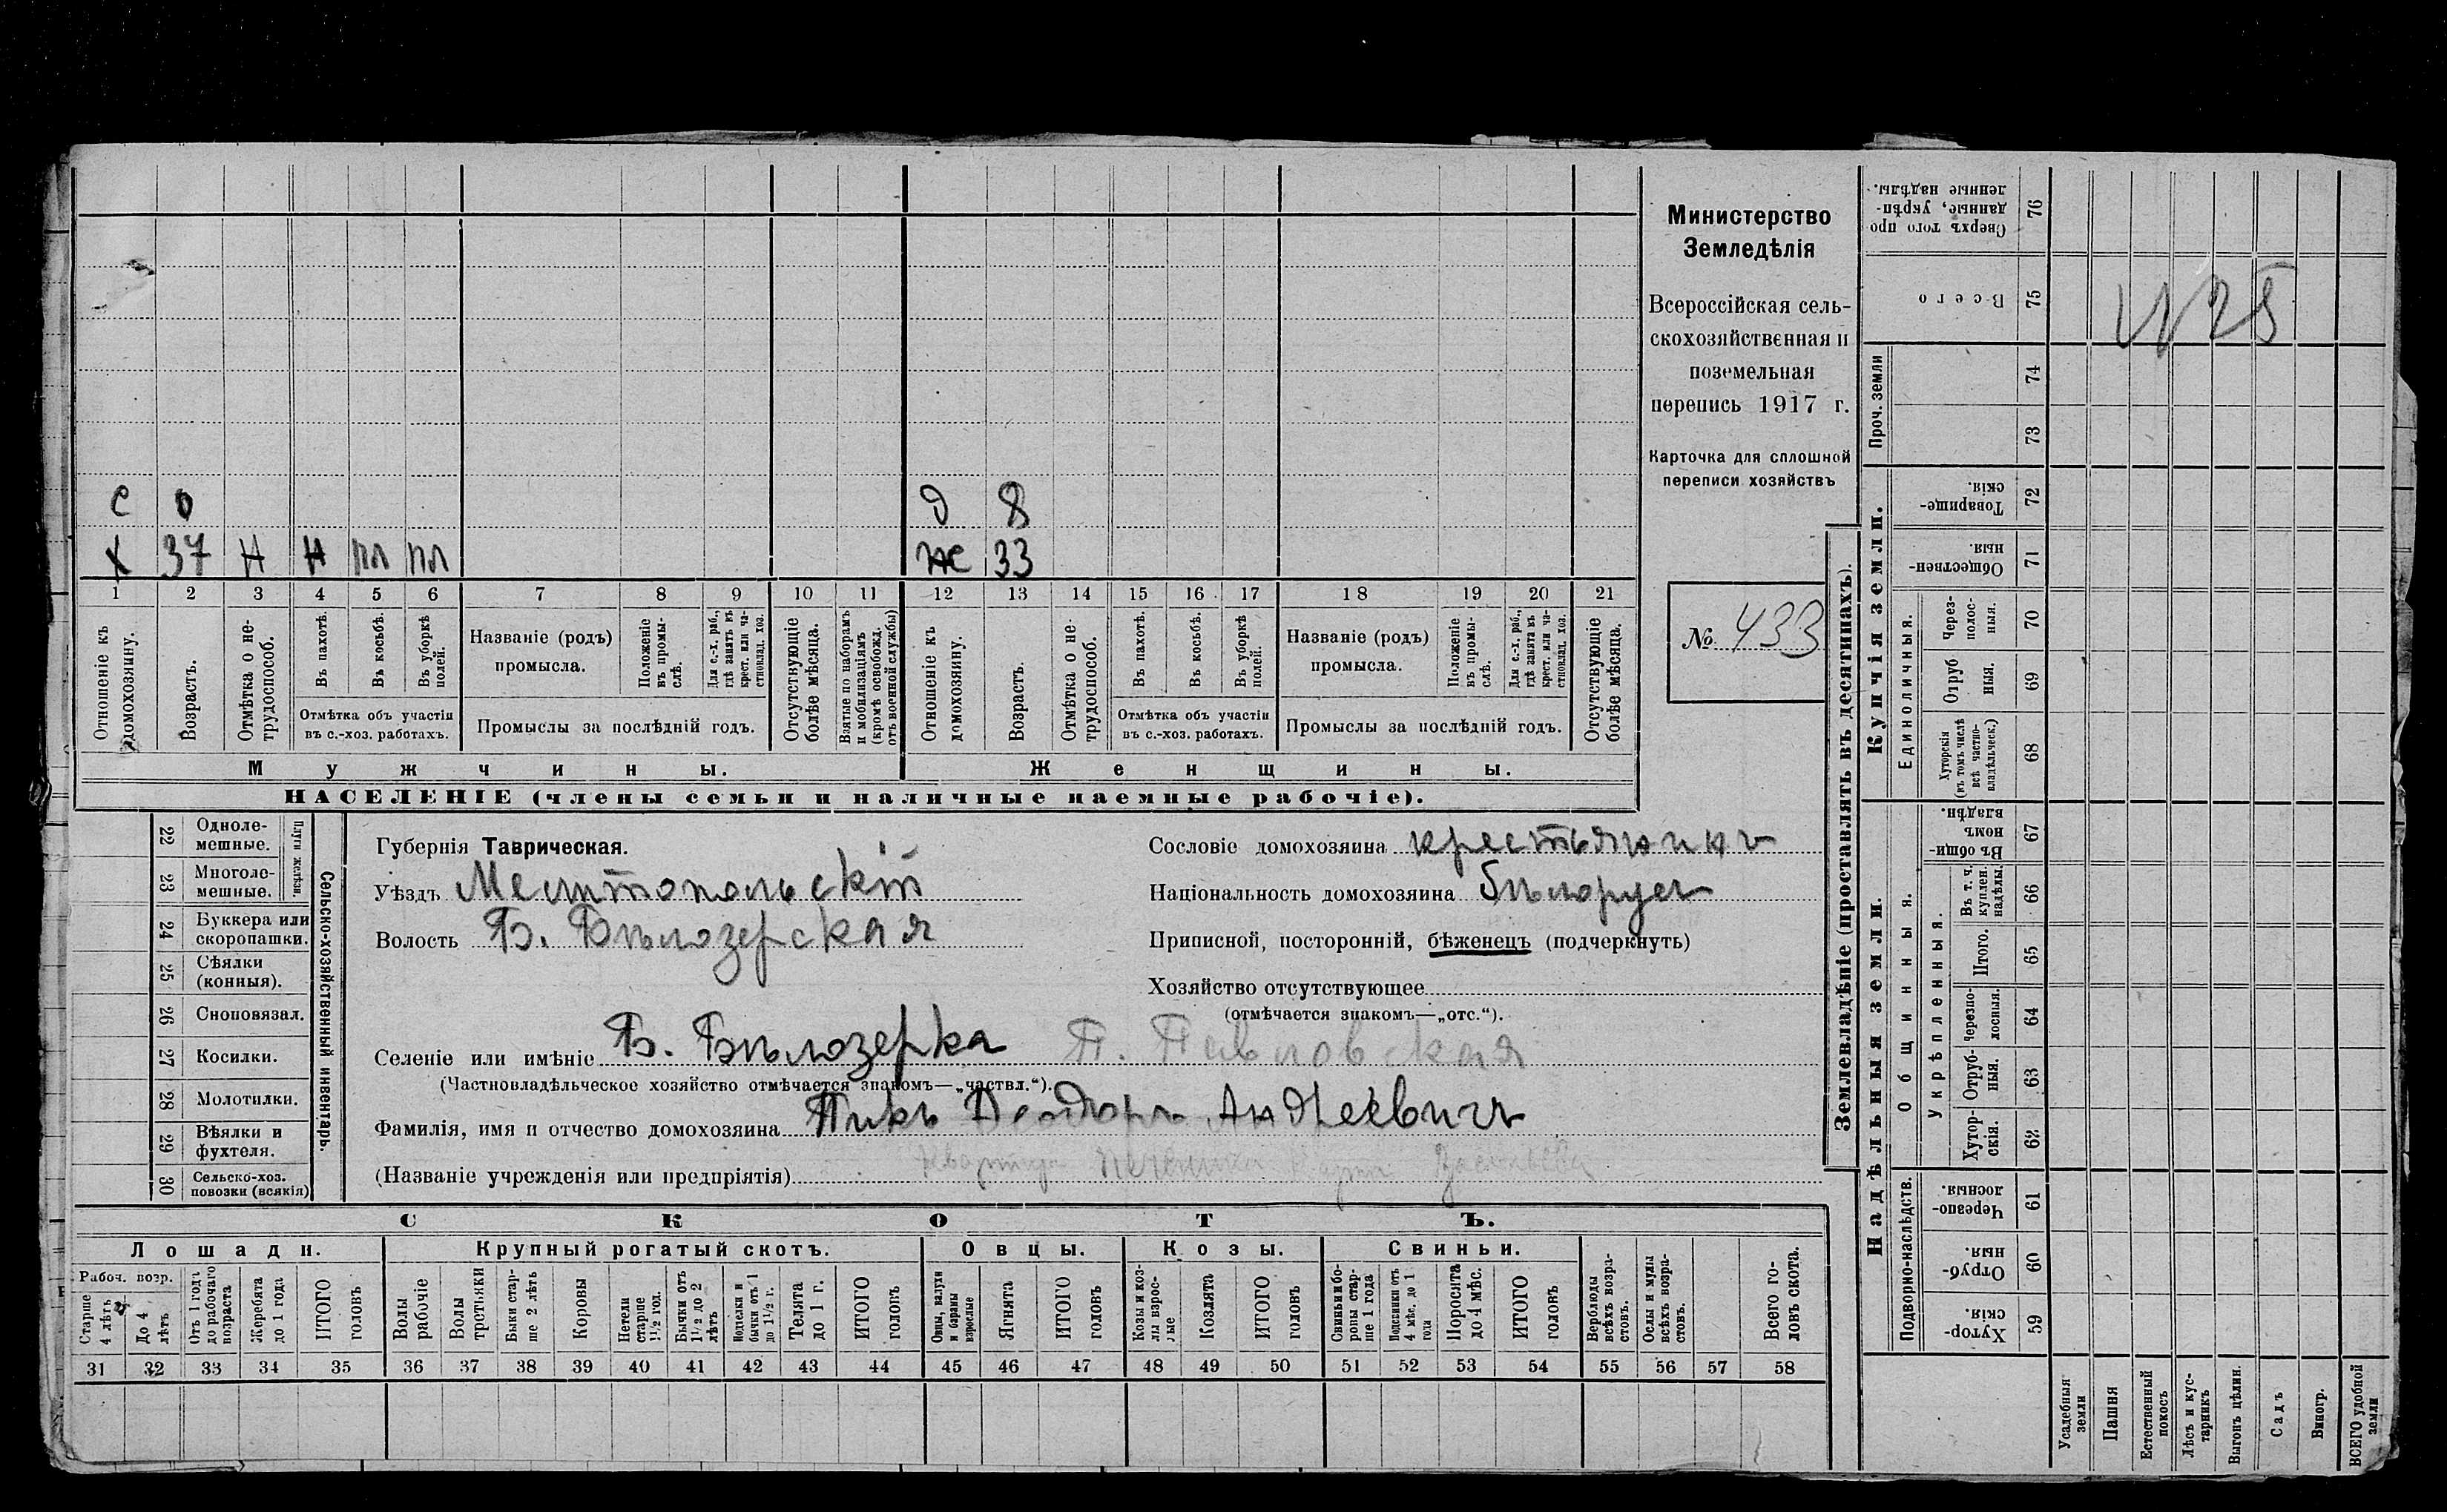 Министерство
Земледѣлія
Всероссійская сель-
скохозяйственная и
поземельная
перепись 1917 г.
Карточка для сплошной
переписи хозяйствъ
№ 433
с 0
д 8
х 37 н н пл пл
ж 33
1 2 3 4 5 6 7 8 9 10 11 12 13 14 15 16 17 18 19 20 21
Отношеніе къ домохозяину.
Возрастъ.
Отмѣтка о не-трудоспособ.
Въ пахотѣ.
Въ косьбѣ.
Въ уборкѣ полей.
Отмѣтка объ участіи
въ с.-хоз. работахъ.
Названіе (родъ)
промысла.
Положеніе въ промы-слѣ.
Для с.-х. раб., гдѣ занятъ въ крест. или ча-стновлад. хоз.
Промыслы за послѣдній годъ.
Отсутствующіе болѣе мѣсяца.
Взятые по наборамъ и мобилизаціямъ (кромѣ освобожд. отъ военной службы)
Отношеніе къ домохозяину.
Возрастъ.
Отмѣтка о не-трудоспособ.
Въ пахотѣ.
Въ косьбѣ.
Въ уборкѣ полей.
Отмѣтка объ участіи
въ с.-хоз. работахъ.
Названіе (родъ)
промысла.
Положеніе въ промы-слѣ.
Для с.-х. раб., гдѣ занята въ крест. или ча-стновлад. хоз.
Промыслы за послѣдній годъ.
Отсутствующіе болѣе мѣсяца.
Мужчины.
Женщины.
НАСЕЛЕНІЕ (члены семьи и наличные наемные рабочіе).
Сельско-хозяйственный инвентарь.
Плуги желѣзн.
22 Одноле-мешные.
23 Многоле-мешные.
24 Буккера или скоропашки.
25 Сѣялки (конныя).
26 Сноповязал.
27 Косилки.
28 Молотилки.
29 Вѣялки и фухтеля.
30 Сельско-хоз. повозки (всякія)
Губернія Таврическая.
Уѣздъ Мелитопольскій
Волость Б. Бѣлозерская
Сословіе домохозяина крестьянинъ
Національность домохозяина бѣлорусъ
Приписной, посторонній, бѣженецъ (подчеркнуть)
Хозяйство отсутствующее
(отмѣчается знакомъ—„отс.“).
Селеніе или имѣніе Б. Бѣлозерка П. Павловская
(Частновладѣльческое хозяйство отмѣчается знакомъ—„частвл.“).
Фамилія, имя и отчество домохозяина Пикъ Андреевичъ
(Названіе учрежденія или предпріятія)
СКОТЪ.
Лошади.
Крупный рогатый скотъ.
Овцы.
Козы.
Свиньи.
Рабоч. возр.
Старше 4 лѣтъ
До 4 лѣтъ
Отъ 1 года до рабочаго возраста
Жеребята до 1 года
ИТОГО головъ
Волы рабочіе
Волы третьяки
Быки стар-ше 2 лѣтъ
Коровы
Нетели старше 1½ год.
Бычки отъ 1½ до 2 лѣтъ
Подтелки и бычки отъ 1 до 1½ г.
Телята до 1 г.
ИТОГО головъ
Овцы, валухи и бараны взрослые
Ягнята
ИТОГО головъ
Козы и коз-лы взрос-лые
Козлята
ИТОГО головъ
Свиньи и бо-ровы стар-ше 1 года
Подсвинки отъ 4 мѣс. до 1 года
Поросята до 4 мѣс.
ИТОГО головъ
Верблюды всѣхъ возра-стовъ.
Ослы и мулы всѣхъ возра-стовъ.
Всего го-ловъ скота.
31 32 33 34 35 36 37 38 39 40 41 42 43 44 45 46 47 48 49 50 51 52 53 54 55 56 57 58
Землевладѣніе (проставлять въ десятинахъ).
Надѣльныя земли.
Купчія земли.
Проч. земли
Подворно-наслѣдств.
Общинныя.
Укрѣпленныя.
Единоличныя.
Сверхъ того про данные, укрѣп-ленные надѣлы. 76
Всего 75
74
73
Товарище-скія. 72
Обществен-ныя. 71
Через-полос-ныя. 70
Отруб ныя. 69
Хуторскія (въ томъ числѣ всѣ частно-владѣльческ.) 68
Въ общи-номъ владѣн. 67
Въ т. ч. куплен. надѣлы. 66
Итого. 65
Черезпо-лосныя. 64
Отруб-ныя. 63
Хутор-скія. 62
Черезпо-лосныя. 61
Отруб-ныя. 60
Хутор-скія. 59
Усадебныя земли
Пашня
Естественный покосъ
Лѣсъ и кус-тарникъ
Выгонъ цѣлин.
Садъ
Виногр.
ВСЕГО удобной земли